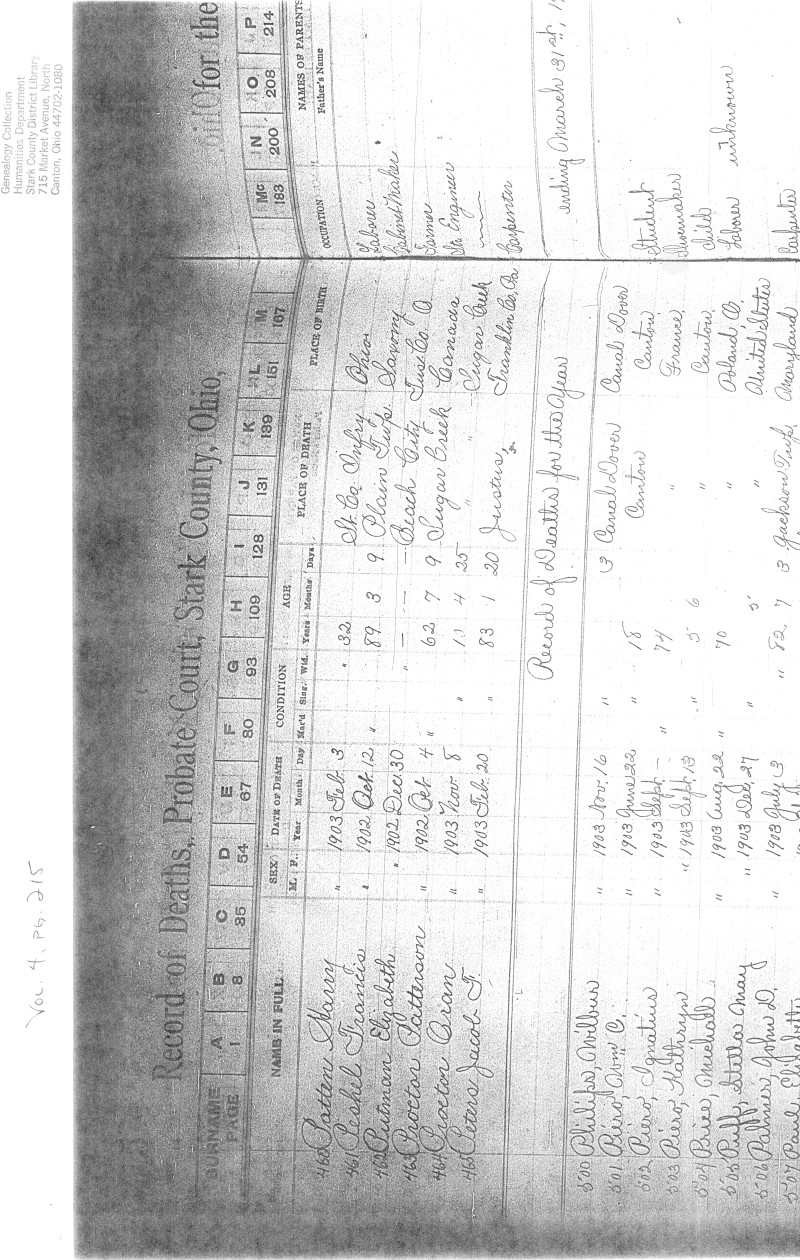 Genealogy Collection
Humanities Department
Stark County District Library
715 Market Avenue, North
Canton, Ohio 44702-1080
Vol. 4, Pg. 215
Record of Deaths, Probate Court, Stark County, Ohio, for the
SURNAME A B C D E F G H I J K L M Mc N O P
PAGE 1 8 35 54 67 80 93 109 128 131 139 151 167 183 200 208 214
NAME IN FULL SEX DATE OF DEATH CONDITION AGE PLACE OF DEATH PLACE OF BIRTH OCCUPATION NAMES OF PARENTS
M. F. Year Month Day Mar'd Sing. Wid. Years Months Days Father's Name
460 Patten Harry " 1903 Feb. 3 " 32 St. Co. Infry Ohio Laborer
461 Peshel Francis " 1902 Oct. 12 " 89 3 9 Plain Twp. Saxony Cabinet Maker
462 Putman Elizabeth " 1902 Dec. 30 " — — — Beach City Tus. Co. O Farmer
463 Proctor Patterson " 1902 Oct. 4 " 62 7 9 Sugar Creek Canada Sta Engineer
464 Proctor Oran " 1903 Nov. 8 " 4 25 " Sugar Creek
465 Peters Jacob F. " 1903 Feb. 20 " 83 1 20 Justus, Franklin Co. Pa Carpenter
Record of Deaths for the Year ending March 31st, 1
500 Philips, Wilbur " 1903 Nov. 16 " 3 Canal Dover Canal Dover
501 Piero, Wm C. " 1903 June 22 " 18 Canton Canton Student
502 Piero, Ignatius " 1903 Sept. — " 74 " France
503 Piero, Kathryn " 1903 Sept. 13 " 5 6 " Canton Child
504 Price, Michael " 1903 Aug. 22 " 70 " Poland O. Laborer unknown
505 Puff, Stella May " 1903 Dec. 27 " 5 " United States
506 Palmer, John D. " 1903 July 3 " 82 7 3 Jackson Twp. Maryland Carpenter
507 Paul, Elizabeth